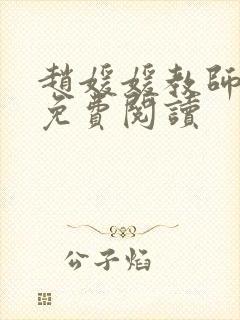 趙媛媛教師
免費閱讀
公子焰